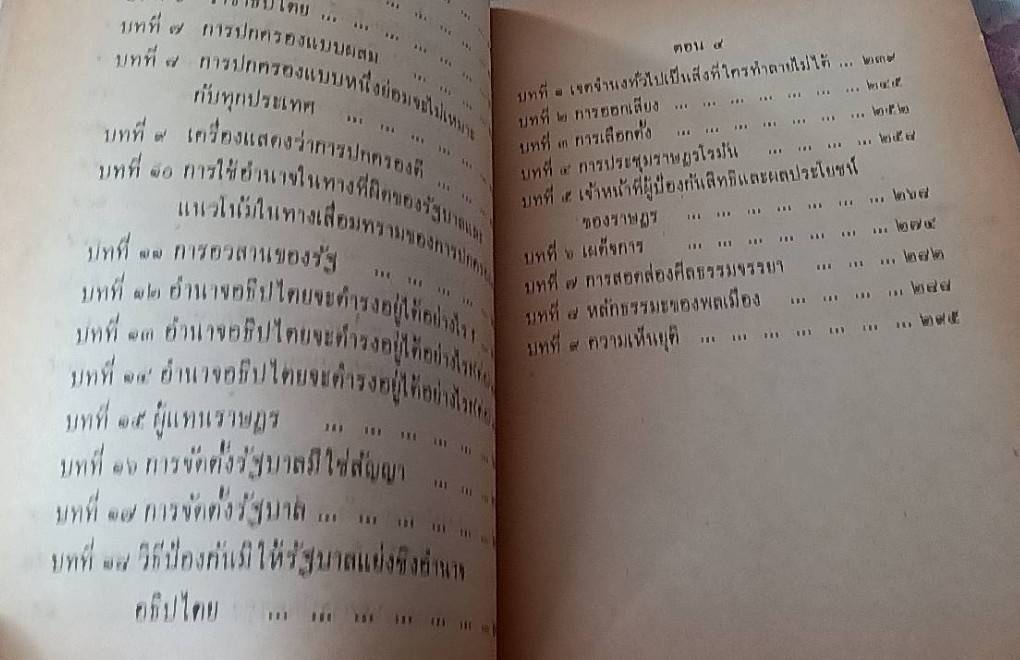 ราชาธิปไตย ... ... ...
บทที่ ๗ การปกครองแบบผสม ... ...
บทที่ ๘ การปกครองแบบหนึ่งย่อมจะไม่เหมาะ
กับทุกประเทศ ... ... ...
บทที่ ๙ เครื่องแสดงว่าการปกครองดี ... ...
บทที่ ๑๐ การใช้อำนาจในทางที่ผิดของรัฐบาลและ
แนวโน้มในทางเสื่อมทรามของการปกครอง
บทที่ ๑๑ การอวสานของรัฐ ... ... ...
บทที่ ๑๒ อำนาจอธิปไตยจะดำรงอยู่ได้อย่างไร ...
บทที่ ๑๓ อำนาจอธิปไตยจะดำรงอยู่ได้อย่างไร(ต่อ)
บทที่ ๑๔ อำนาจอธิปไตยจะดำรงอยู่ได้อย่างไร(ต่อ)
บทที่ ๑๕ ผู้แทนราษฎร ... ... ... ... ...
บทที่ ๑๖ การจัดตั้งรัฐบาลมิใช่สัญญา ... ...
บทที่ ๑๗ การจัดตั้งรัฐบาล ... ... ... ... ...
บทที่ ๑๘ วิธีป้องกันมิให้รัฐบาลแย่งชิงอำนาจ
อธิปไตย ... ... ... ... ... ...
ตอน ๔
บทที่ ๑ เจตจำนงทั่วไปเป็นสิ่งที่ใครทำลายไม่ได้ ... ๒๓๙
บทที่ ๒ การออกเสียง ... ... ... ... ... ... ... ๒๔๕
บทที่ ๓ การเลือกตั้ง ... ... ... ... ... ... ... ๒๕๒
บทที่ ๔ การประชุมราษฎรโรมัน ... ... ... ... ๒๕๗
บทที่ ๕ เจ้าหน้าที่ผู้ป้องกันสิทธิและผลประโยชน์
ของราษฎร ... ... ... ... ... ... ... ๒๖๘
บทที่ ๖ เผด็จการ ... ... ... ... ... ... ... ๒๗๔
บทที่ ๗ การสอดส่องศีลธรรมจรรยา ... ... ... ๒๘๒
บทที่ ๘ หลักธรรมะของพลเมือง ... ... ... ... ๒๘๗
บทที่ ๙ ความเห็นยุติ ... ... ... ... ... ... ... ๒๙๕